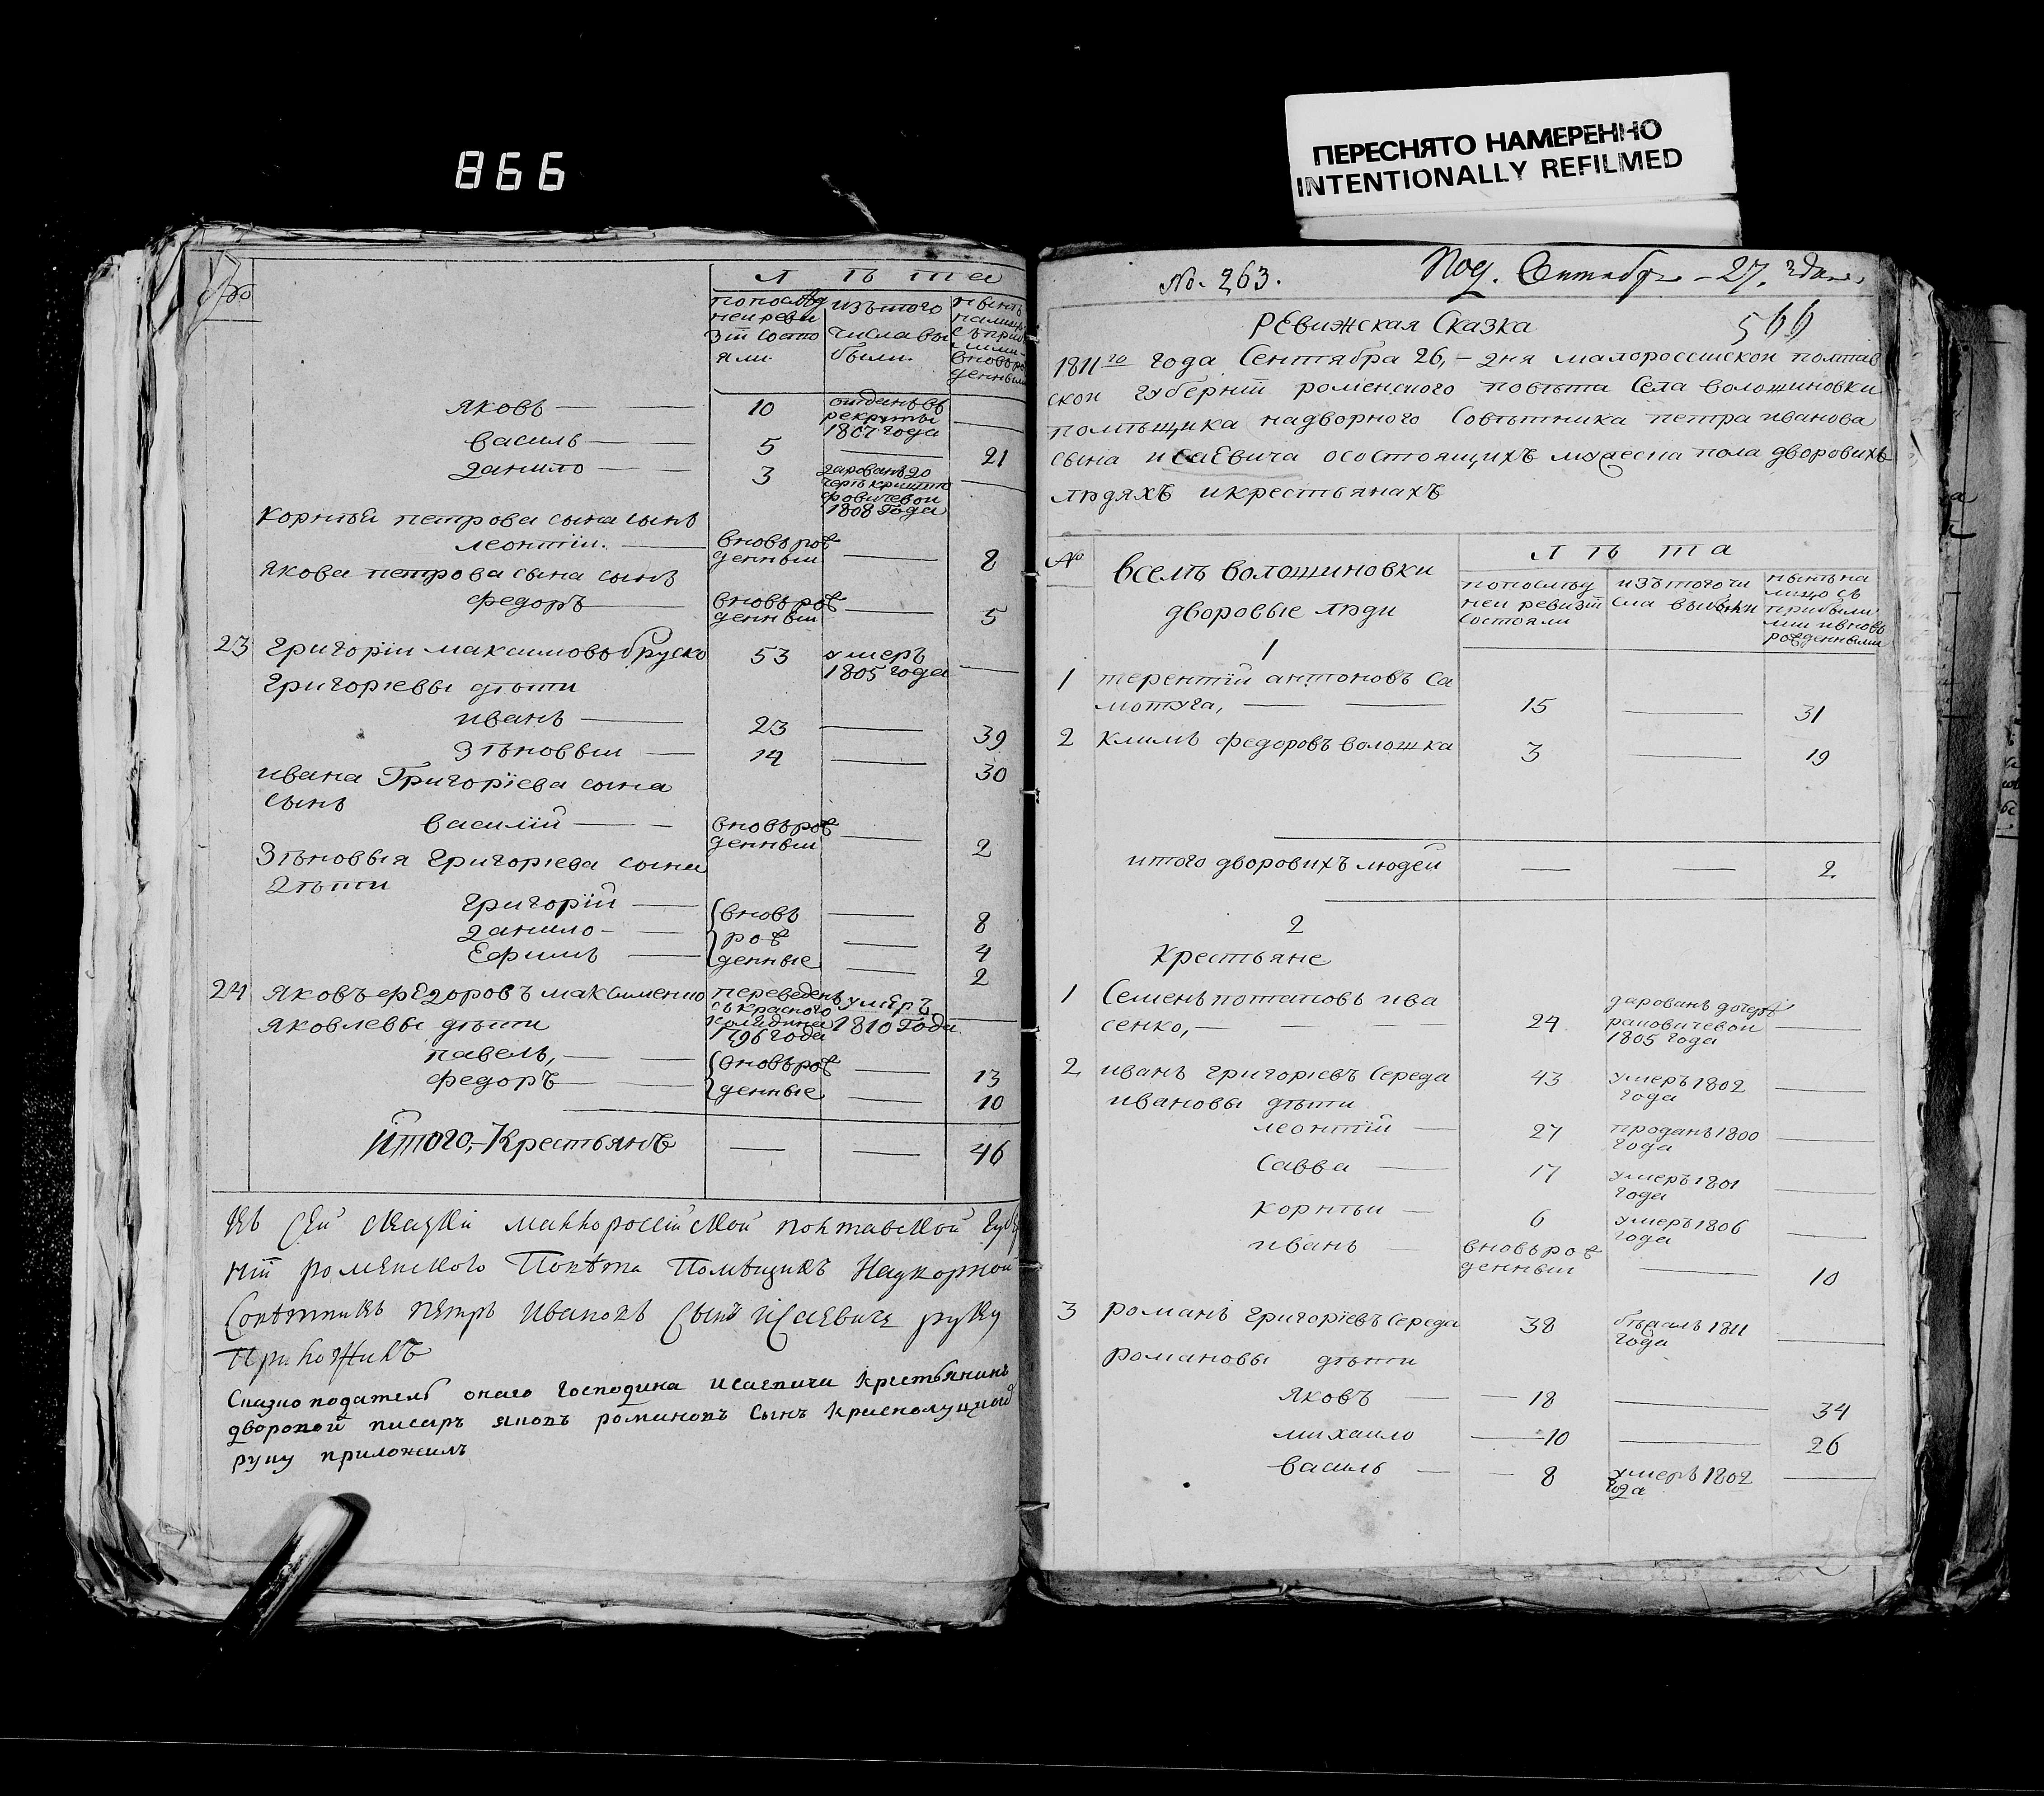 866
ПЕРЕСНЯТО НАМЕРЕННО
INTENTIONALLY REFILMED
№
Л ѣ т а
попослѣд
неи реви
зіи Состо
яли.
изътого
числа вы
были.
нынѣ
налицо
съ при
были
вновьро
денными
яковъ — — 10 отданъвъ рекруты 1807 года —
василь — — 5 — 21
данило — — 3 дарованъ до
черѣ кришто
фовичевои
1808 Года —
корнѣя петрова сына сынъ
леонтіи. — вновьрож
денныи — 8
якова петрова сына сынъ
федоръ — вновьрож
денныи — 5
23 Григоріи максимовъ бруско 53 умеръ
1805 года —
григоріевы дѣти
иванъ — 23 — 39
Зѣновыи — 14 — 30
ивана Григоріева сына
сынъ
василіи — — вновьрож
денныи — 2
Зѣновыя Григоріева сына
дѣти
григоріи — вновь — 8
данило — — рож — 4
Ефимъ — денные — 2
24 яковъ фЕдоровъ максименко переведенъ
съ красного
колядина
1796 года умЕръ
1810 Года —
яковлевы дѣти
павелъ, — — вновьрож — 13
федоръ — — денные — 10
Итого, — Крестьянъ — — 46
Къ сЕй сказки малороссійской полтавской губЕ
ніи ромЕнского Повѣта Помѣщикъ Надворной
Совѣтникъ пЕтръ Ивановъ Сынъ ИсаЕвичъ руку
Приложилъ
Сказкоподатель онаго господина исаевича крестьянинъ
дворовой писаръ яковъ романовъ сынъ Краснолуцкой
руку приложилъ
№. 263.
Под. Октября — 27. дня.
566
РЕвижская Сказка
1811го года Сентября 26, — дня малороссиской полтав
скои губерніи роменского повѣта Села волошиновки
помѣщика надворного Совѣтника петра иванова
сына исаЕвича осостоящихъ мужеска пола дворовихъ
людяхъ икрестьянахъ
№
вселѣ волошиновки
дворовые люди
Л ѣ т а
попослѣд
неи ревизіи
состояли
изътогочи
сла выбыли
нынѣ на
лицо съ
прибыли
ми ивновь
рожденными
1
1 терентіи антоновъ Са
мотуга, — — 15 — 31
2 климъ федоровъ волошка 3 — 19
итого дворовихъ людеи — — 2
2
крестьяне
1 Семенъ потаповъ ива
сенко, — — — 24 дарованъ дочерѣ
рановичевои
1805 года —
2 иванъ григоріевъ Середа 43 умеръ 1802
года —
ивановы дѣти
леонтіи — 27 проданъ 1800
года —
Савва — 17 умеръ 1801
года —
корнѣи — 6 умеръ 1806
года —
иванъ — вновьрож
денныи — 10
3 романъ григоріевъ Середа 38 бѣжалъ 1811
года —
романовы дѣти
яковъ — — 18 — 34
михаило — 10 — 26
василь — — 8 умеръ 1802
года —